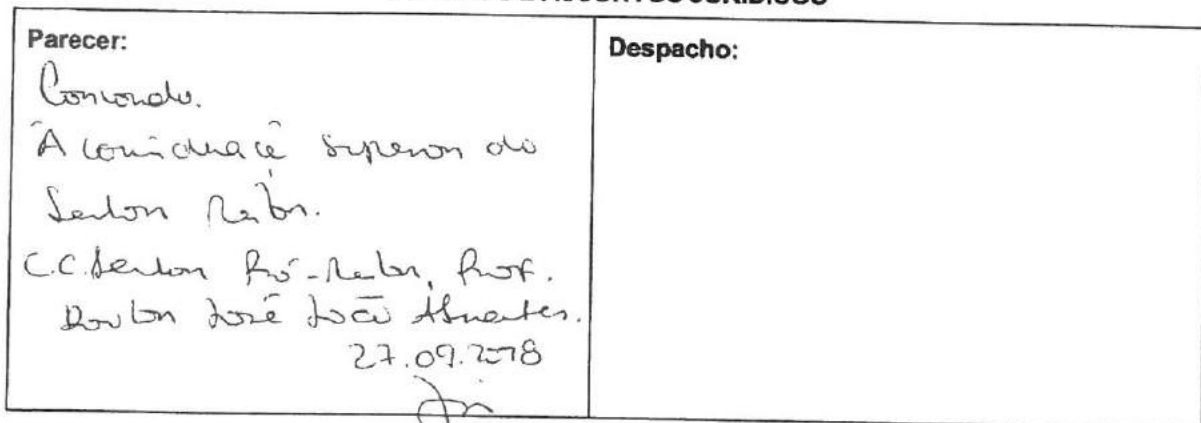 ASSUNTOS JURÍDICOS
Parecer:
Concordo.
À consideração superior do
Senhor Reitor.
C.C. Senhor Pró-Reitor, Prof.
Doutor José João Abrantes.
27.09.2018
Despacho: